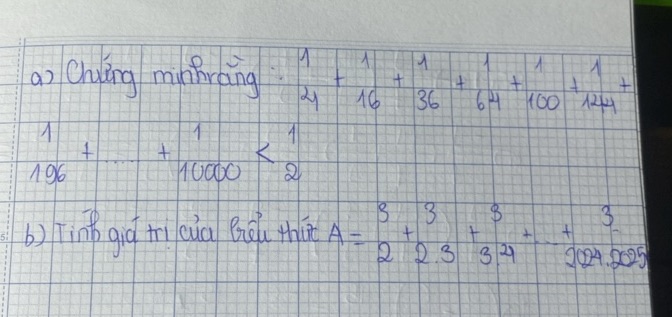 a) Chứng minh rằng : 1/4 + 1/16 + 1/36 + 1/64 + 1/100 + 1/144 +
1/196 + ... + 1/10000 < 1/2
b) Tính giá trị của biểu thức A = 3/2 + 3/2.3 + 3/3.4 + ... + 3/2024.2025